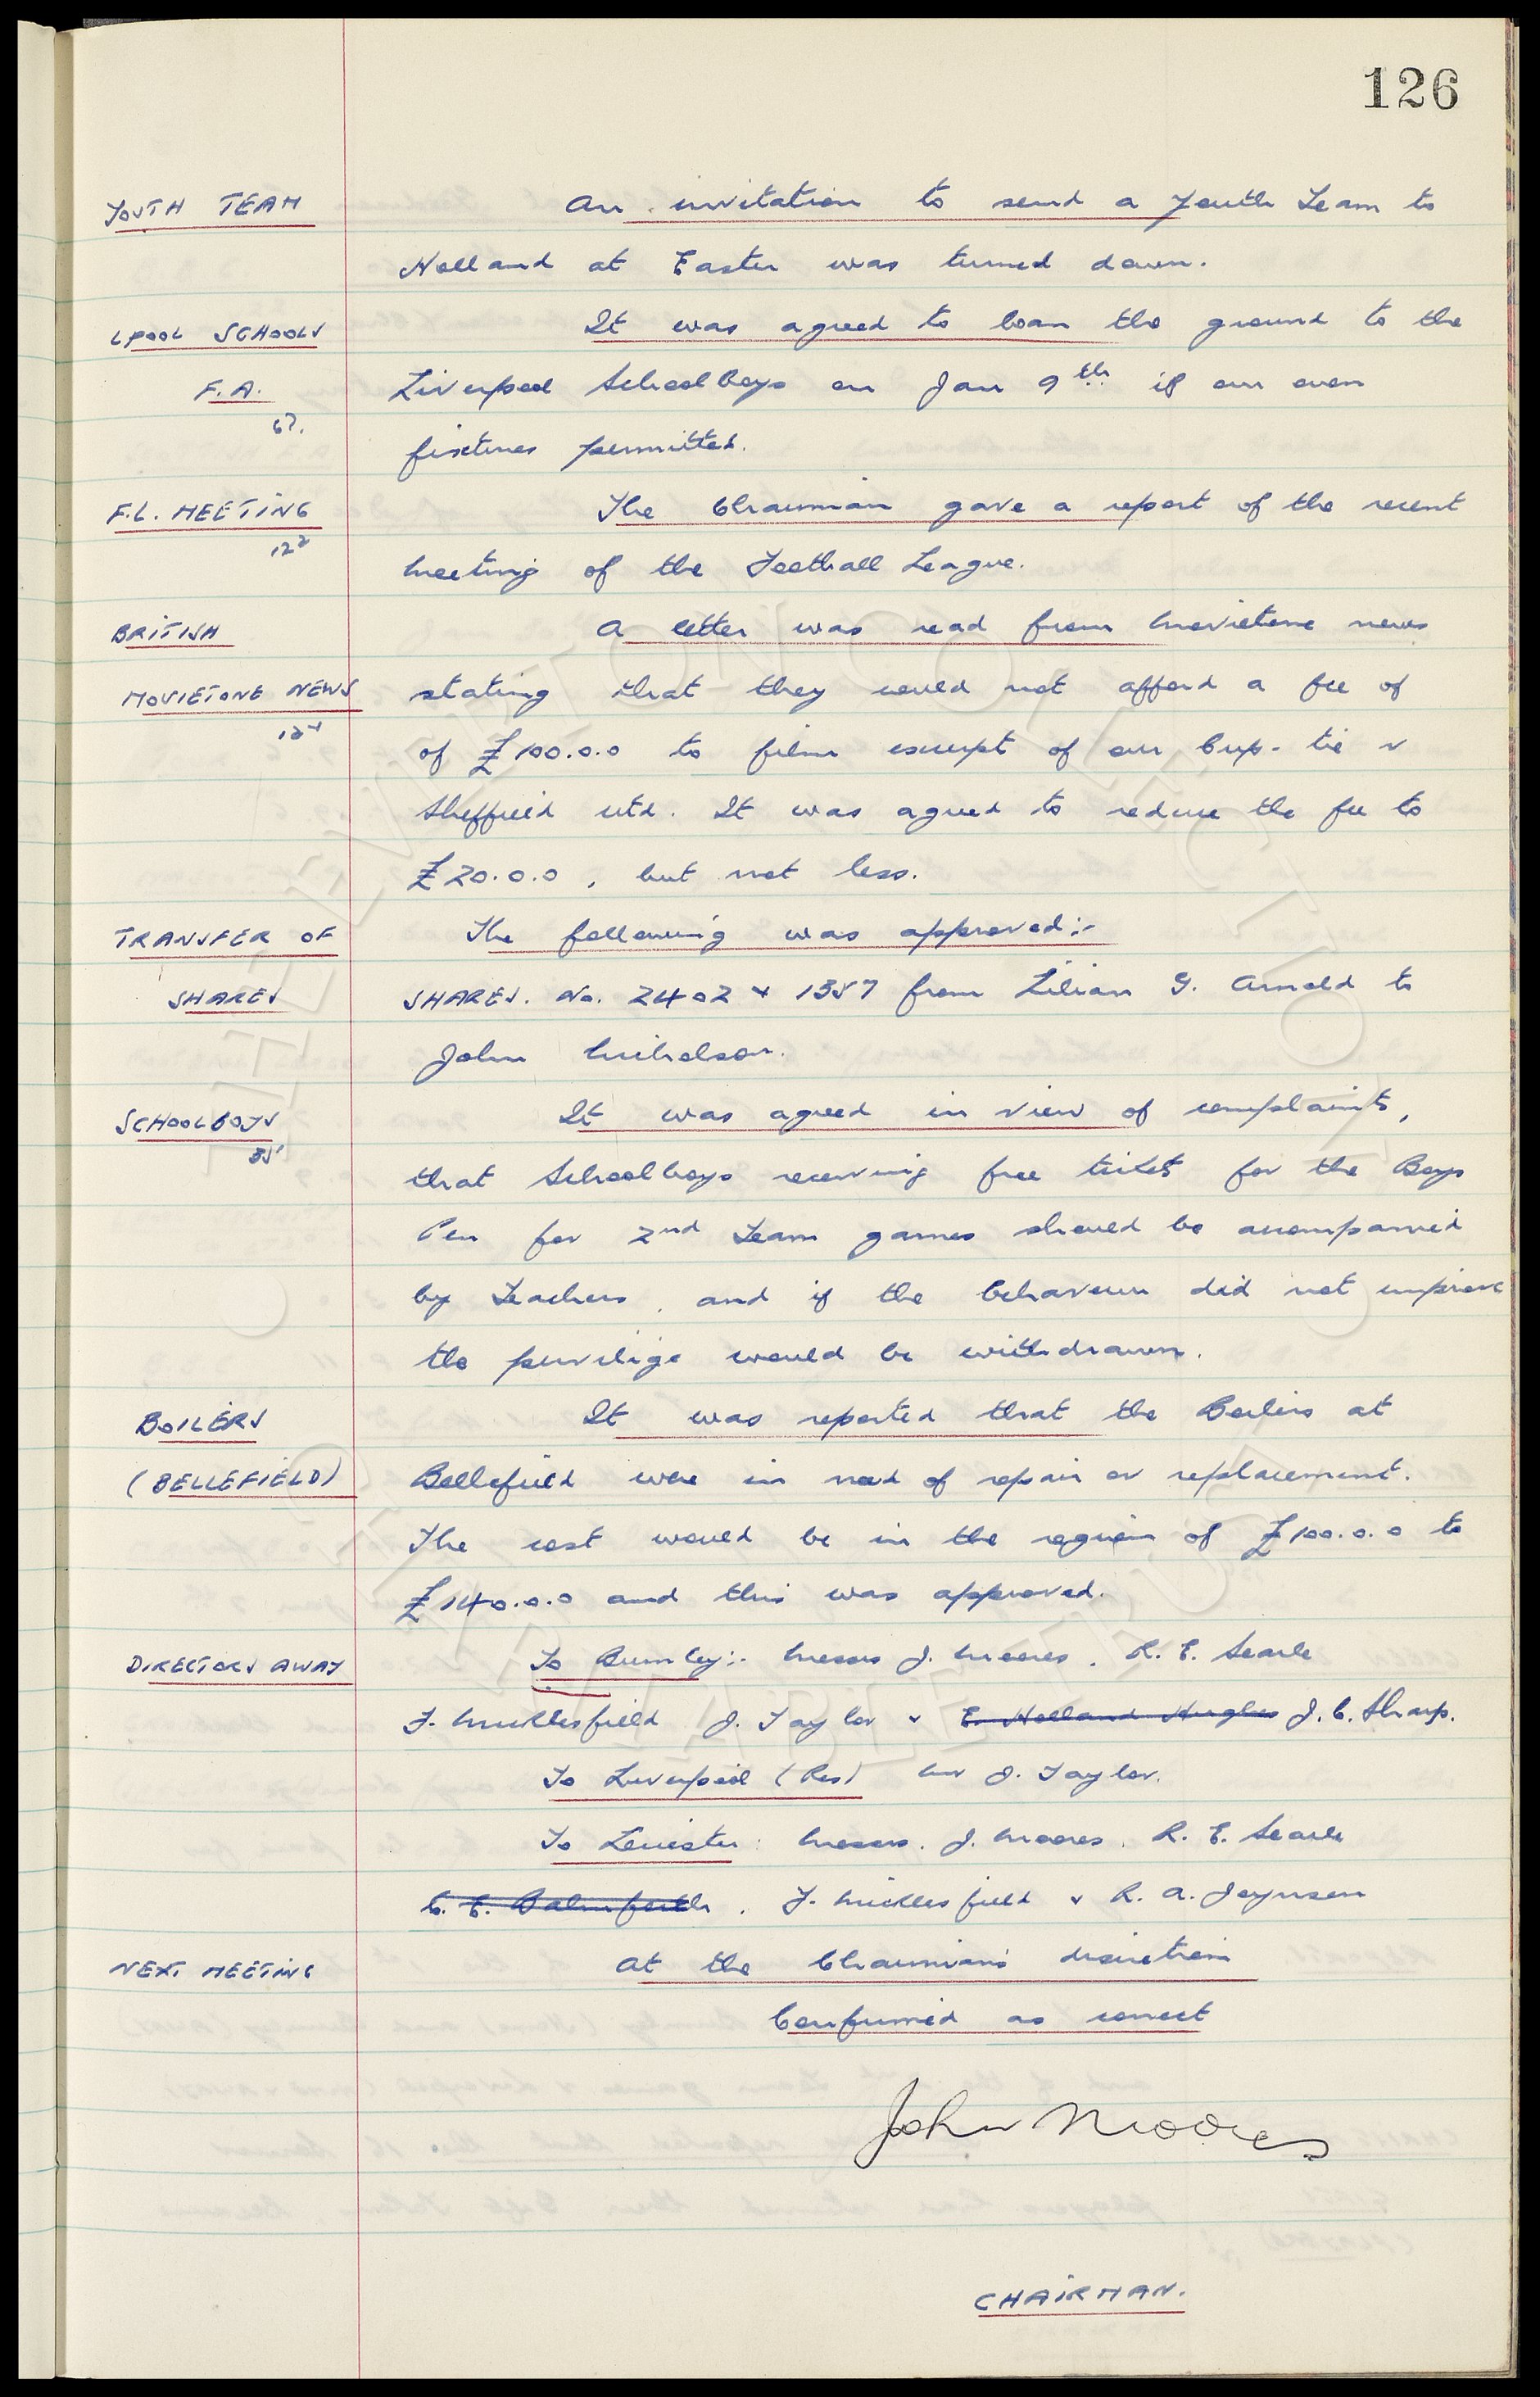 126
YOUTH TEAM An invitation to send a Youth Team to
Holland at Easter was turned down.
LPOOL SCHOOLS It was agreed to loan the ground to the
F.A. Liverpool Schoolboys on Jan 9th if our own
67. fixtures permitted.
F.L. MEETING The Chairman gave a report of the recent
122 meeting of the Football League.
BRITISH A letter was read from Movietone news
MOVIETONE NEWS stating that they could not afford a fee of
124 of £100.0.0 to film excerpt of our Cup-tie v
Sheffield utd. It was agreed to reduce the fee to
£20.0.0, but not less.
TRANSFER OF The following was approved:-
SHARES SHARES. No. 2402 & 1357 from Lilian G. Arnold to
John Nicholson.
SCHOOLBOYS It was agreed in view of complaints,
35 that Schoolboys receiving free tickets for the Boys
Pen for 2nd Team games should be accompanied
by Teachers, and if the behaviour did not improve
the privilige would be withdrawn.
BOILERS It was reported that the Boilers at
(BELLEFIELD) Bellefield were in need of repair or replacement.
The cost would be in the region of £100.0.0 to
£140.0.0 and this was approved.
DIRECTORS AWAY To Burnley:- Messrs J. Moores, R. E. Searle
F. Micklesfield J. Taylor & E. Holland Hughes J. C. Sharp.
To Liverpool (Res) Mr J. Taylor.
To Leicester: Messrs. J. Moores, R. E. Searle
C. E. Balmforth, F. Micklesfield & R. A. Joynson
NEXT MEETING At the Chairman's discretion
Confirmed as correct
John Moores
CHAIRMAN.